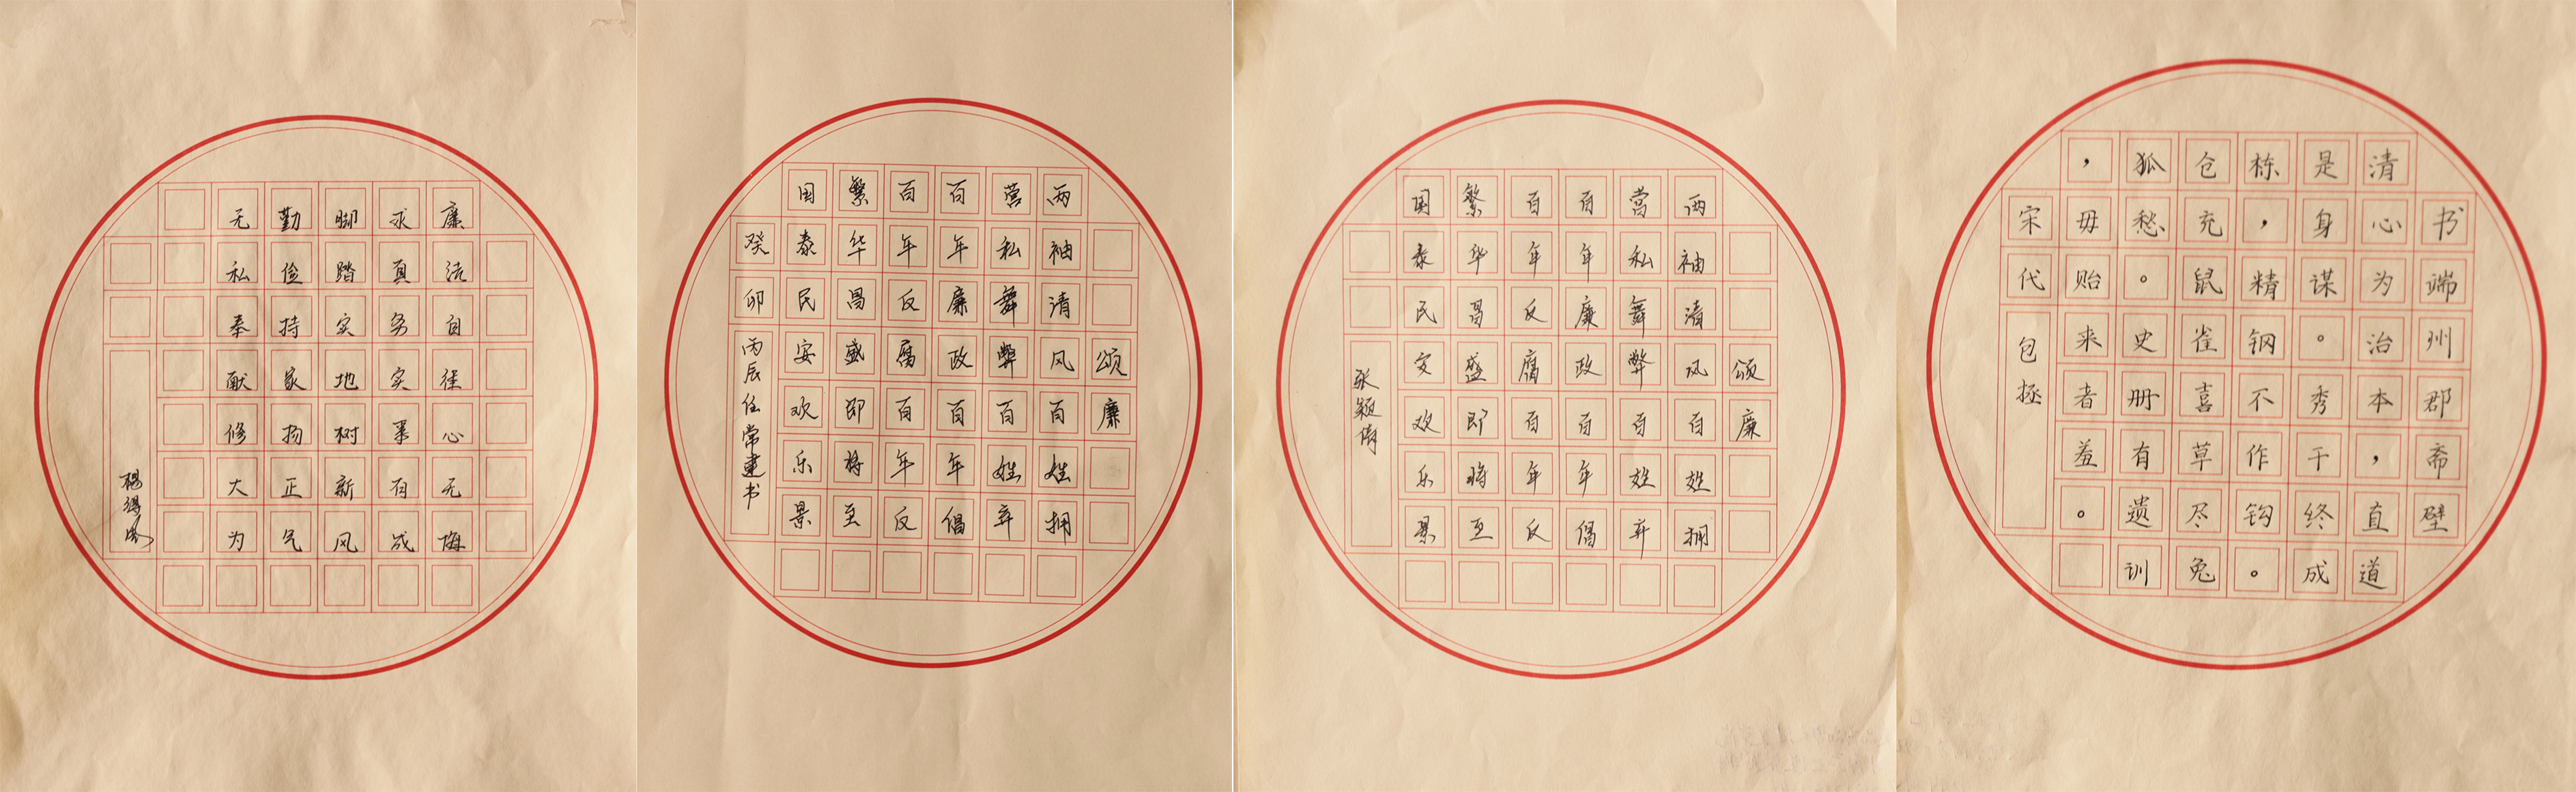 廉洁自律心无悔
求真务实果有成
脚踏实地树新风
勤俭持家扬正气
无私奉献修大为
颂廉
两袖清风百姓拥
营私舞弊百姓弃
百年廉政百年倡
百年反腐百年反
繁华昌盛即将至
国泰民安欢乐景
癸卯
丙辰任常建书
颂廉
两袖清风百姓拥
营私舞弊百姓弃
百年廉政百年倡
百年反腐百年反
繁华昌盛即将至
国泰民安欢乐景
书端州郡斋壁
清心为治本，直道
是身谋。秀干终成
栋，精钢不作钩。
仓充鼠雀喜草尽兔
狐愁。史册有遗训
，毋贻来者羞。
宋代包拯